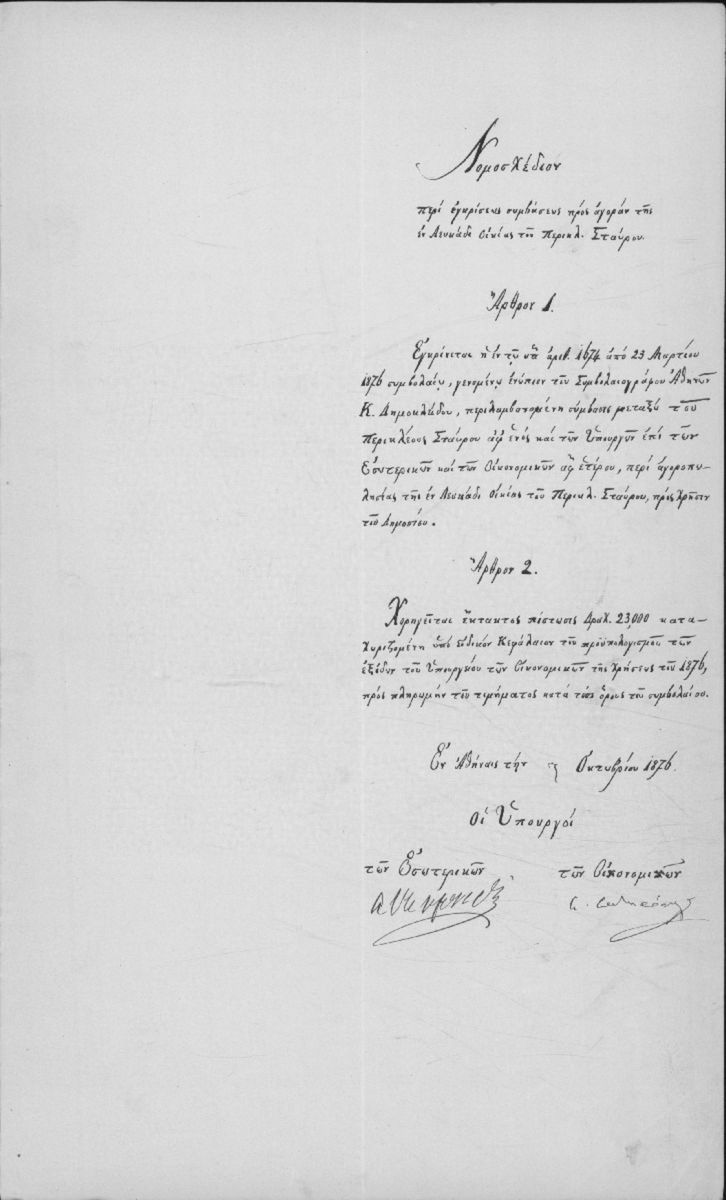 Νομοσχέδιον
περί ἐγκρίσεως συμβάσεως πρός ἀγοράν τῆς
ἐν Λευκάδι οἰκίας τοῦ Περικλ. Σταύρου.
Ἄρθρον 1.
Ἐγκρίνεται ἡ ἐν τῷ ὑπ' ἀριθ. 1674 ἀπό 23 Μαρτίου
1876 συμβολαίῳ, γενομένῳ ἐνώπιον τοῦ Συμβολαιογράφου Ἀθηνῶν
Κ. Δημοκλείδου, περιλαμβανομένη σύμβασις μεταξύ τοῦ
Περικλέους Σταύρου ἀφ' ἑνός καί τῶν Ὑπουργῶν ἐπί τῶν
Ἐσωτερικῶν καί τῶν Οἰκονομικῶν ἀφ' ἑτέρου, περί ἀγοροπω-
λησίας τῆς ἐν Λευκάδι οἰκίας τοῦ Περικλ. Σταύρου, πρός χρῆσιν
τοῦ Δημοσίου.
Ἄρθρον 2.
Χορηγεῖται ἔκτακτος πίστωσις Δραχ. 23,000 κατα-
χωριζομένη ὑπό εἰδικόν Κεφάλαιον τοῦ προϋπολογισμοῦ τῶν
ἐξόδων τοῦ Ὑπουργείου τῶν Οἰκονομικῶν τῆς χρήσεως τοῦ 1876,
πρός πληρωμήν τοῦ τιμήματος κατά τούς ὅρους τοῦ συμβολαίου.
Ἐν Ἀθήναις τήν Ὀκτωβρίου 1876.
Οἱ Ὑπουργοί
τῶν Ἐσωτερικῶν τῶν Οἰκονομικῶν